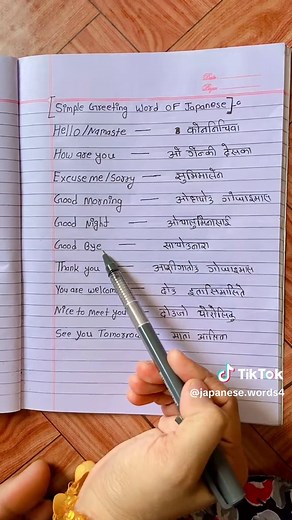 [Simple Greeting Word OF Japanese]
Hello/Namaste — कोननिचिवा
How are you — ओ गेन्की देसका
Excuse me/Sorry — सुमिमासेन
Good Morning — ओहायोउ गोजाइमास
Good Night — ओयासुमिनासाई
Good Bye — सायोउनारा
Thank you
You are welcom
Nice to meet you
See you Tomorrow — माता आसिता
TikTok
@japanese.words4